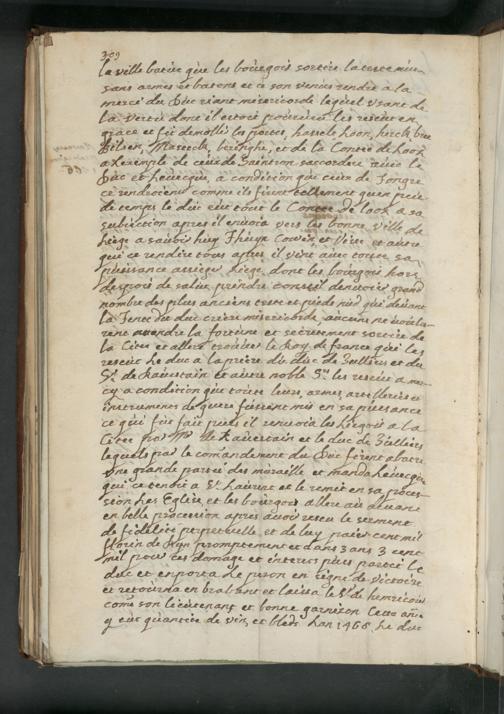 309
la ville batire que les bourgois sortire la teste nue
sans armes et batons et ce son venus rendre a la
merci du Duc criant misericorde lequel usant de
la vertu dont il estoit les resent en
grace et fit demollir les portes, hasselt Loon, herck, bree
Bilsen, Maseeck, beringhe, et de la Conté de Look
a lexemple de ceux de Saintron saccordere avec le
Duc et levecque, a condition que ceux de Tongre
ce rendroient comme ils firent tellement que en peu
de temps le duc eut tout le Conté de look a sa
subiection apres il envoia vers les bonne ville de
Liege a savoir huy Thuin Covin et et autre
qui ce rendire tous apres il vint avec toute sa
puissance assieger Liege, dont les bourgois hors
despoir de salut prindre conseil denvoier grand
nombre des plus anciens teste et pieds nud qui devant
la Tente du duc criere misericorde, aucuns ne
rent atendre la fortune et secretement sortire de
la Cité et allere trouver le Roy de france qui les
receut Le duc a la priere du duc de Jullers et du
Sr. de Ravestain et autre noble Srs. les receut a mer-
cy a condition que toute leurs, armes, artelleries et
instruments de guere fussent mis en sa puissance
ce qui fut fait puis il renvoia les liegois a la
Cité par Mr. de Ravestain et le duc de Julliers
lequels par le comandement du Duc firent abatre
une grande partie des muraille et manda levecque
qui ce tenoit a St. Laurent et le remit en sa proces-
sion Les Eglise et les bourgois allere au devant
en belle procession apres avoir receu le serment
de fidelité perpetuelle et de luy paier cent mil
florin de promptement et dans 3 ans 3 cent
mil pour ces domage et interes puis partit le
duc et enporta le peron en signe de victoire
et retourna en brabant et laissa le Sr. de humercour
come son lieutenant et bonne garnison Cette année
y eut quantité de vin, et bleds. Lan 1466 Le duc